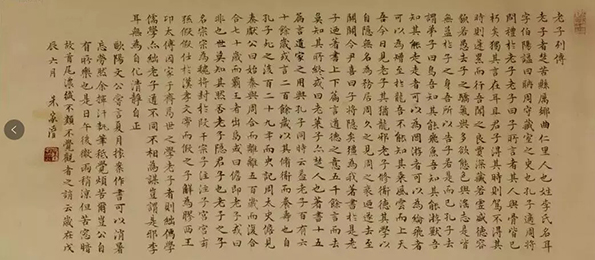 老子列傳
老子者楚苦縣厲鄉曲仁里人也姓李氏名耳
字伯陽謚曰聃周守藏室之史也孔子適周將
問禮於老子老子曰子所言者其人與骨皆已
朽矣獨其言在耳且君子得其時則駕不得其
時則蓬累而行吾聞之良賈深藏若虛盛德容
貌若愚去子之驕氣與多欲態色與淫志是皆
無益於子之身吾所以告子若是而已孔子去
謂弟子曰鳥吾知其能飛魚吾知其能游獸吾
知其能走走者可以為罔游者可以為綸飛者
可以為矰至於龍吾不能知其乘風雲而上天
吾今日見老子其猶龍邪老子修道德其學以
自隱無名為務居周久之見周之衰迺遂去至
關關令尹喜曰子將隱矣彊為我著書於是老
子迺著書上下篇言道德之意五千餘言而去
莫知其所終或曰老萊子亦楚人也著書十五
篇言道家之用與孔子同時云蓋老子百有六
十餘歲或言二百餘歲以其脩道而養壽也自
孔子死之後百二十九年而史記周太史儋見
秦獻公曰始秦與周合而離離五百歲而復合
合七十歲而霸王者出焉或曰儋即老子或曰
非也世莫知其然否老子隱君子也老子之子
名宗宗為魏將封於段干宗子注注子宮宮玄
孫假假仕於漢孝文帝而假之子解為膠西王
卬太傅因家于齊焉世之學老子者則絀儒學
儒學亦絀老子道不同不相為謀豈謂是邪李
耳無為自化清靜自正
歐陽文公嘗言夏月據案作書可以消暑
忘勞然余揮汗執筆祇覺煩苦爾豈公自
有所樂也是日午後微雨稍涼但苦窗暗
故首尾濃纖不類不覺觀者之誚云歲在戊
辰六月 朱家濟